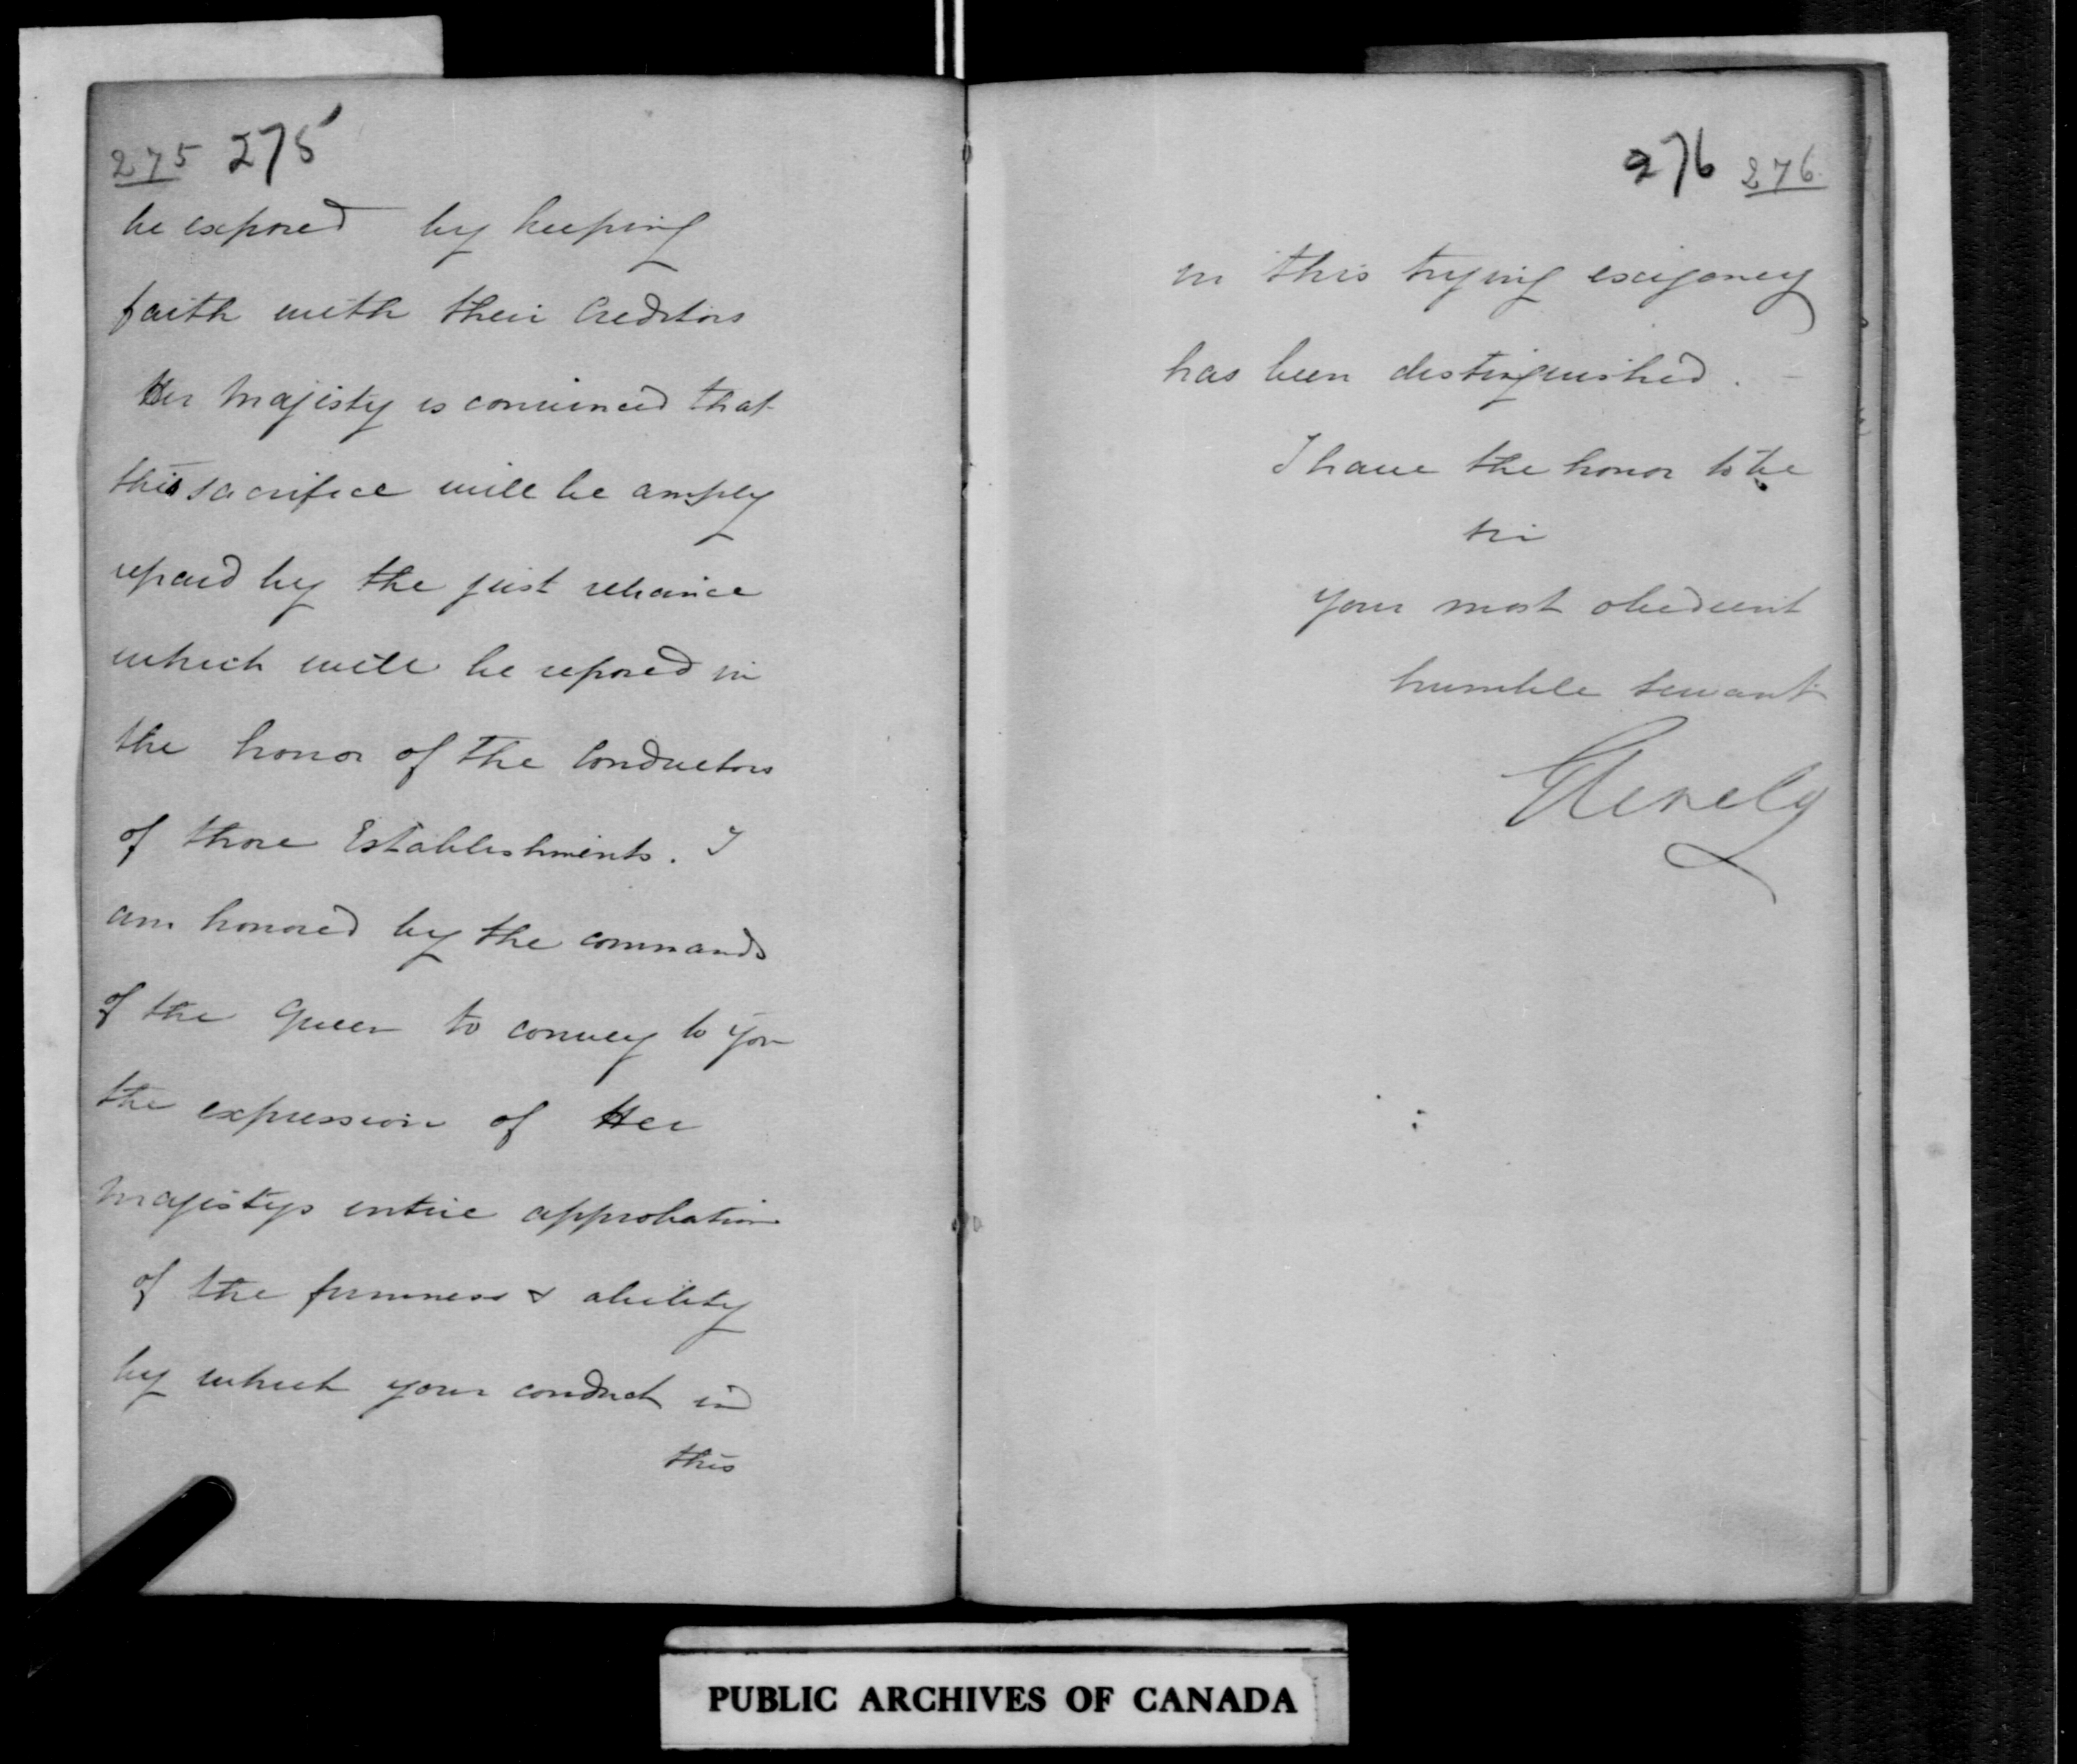 275 275
be exposed by keeping
faith with their Creditors
Her Majesty is convinced that
this sacrifice will be amply
repaid by the just reliance
which will be reposed in
the honor of the Conductors
of those Establishments. I
am honored by the commands
of the Queen to convey to you
the expression of Her
Majestys entire approbation
of the firmness & ability
by which your conduct in
this
276 276
in this trying exigency
has been distinguished.
I have the honor to be
Sir
Your most obedient
humble servant
Glenelg
PUBLIC ARCHIVES OF CANADA